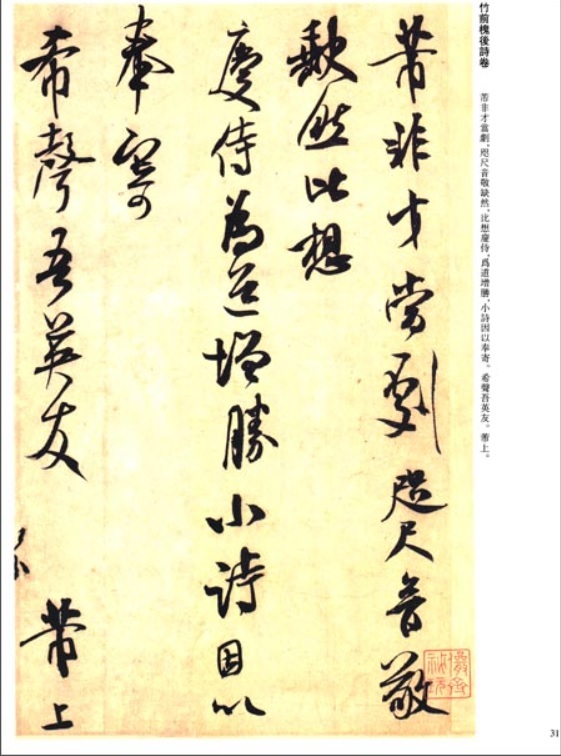 竹前槐後詩卷
芾非才當劇、咫尺音敬缺然、比想慶侍、爲道增勝、小詩因以奉寄。希聲吾英友。芾上。
芾非才當劇咫尺音敬
缺然比想
慶侍為道增勝小詩因以
奉寄
希聲吾英友 芾上
31